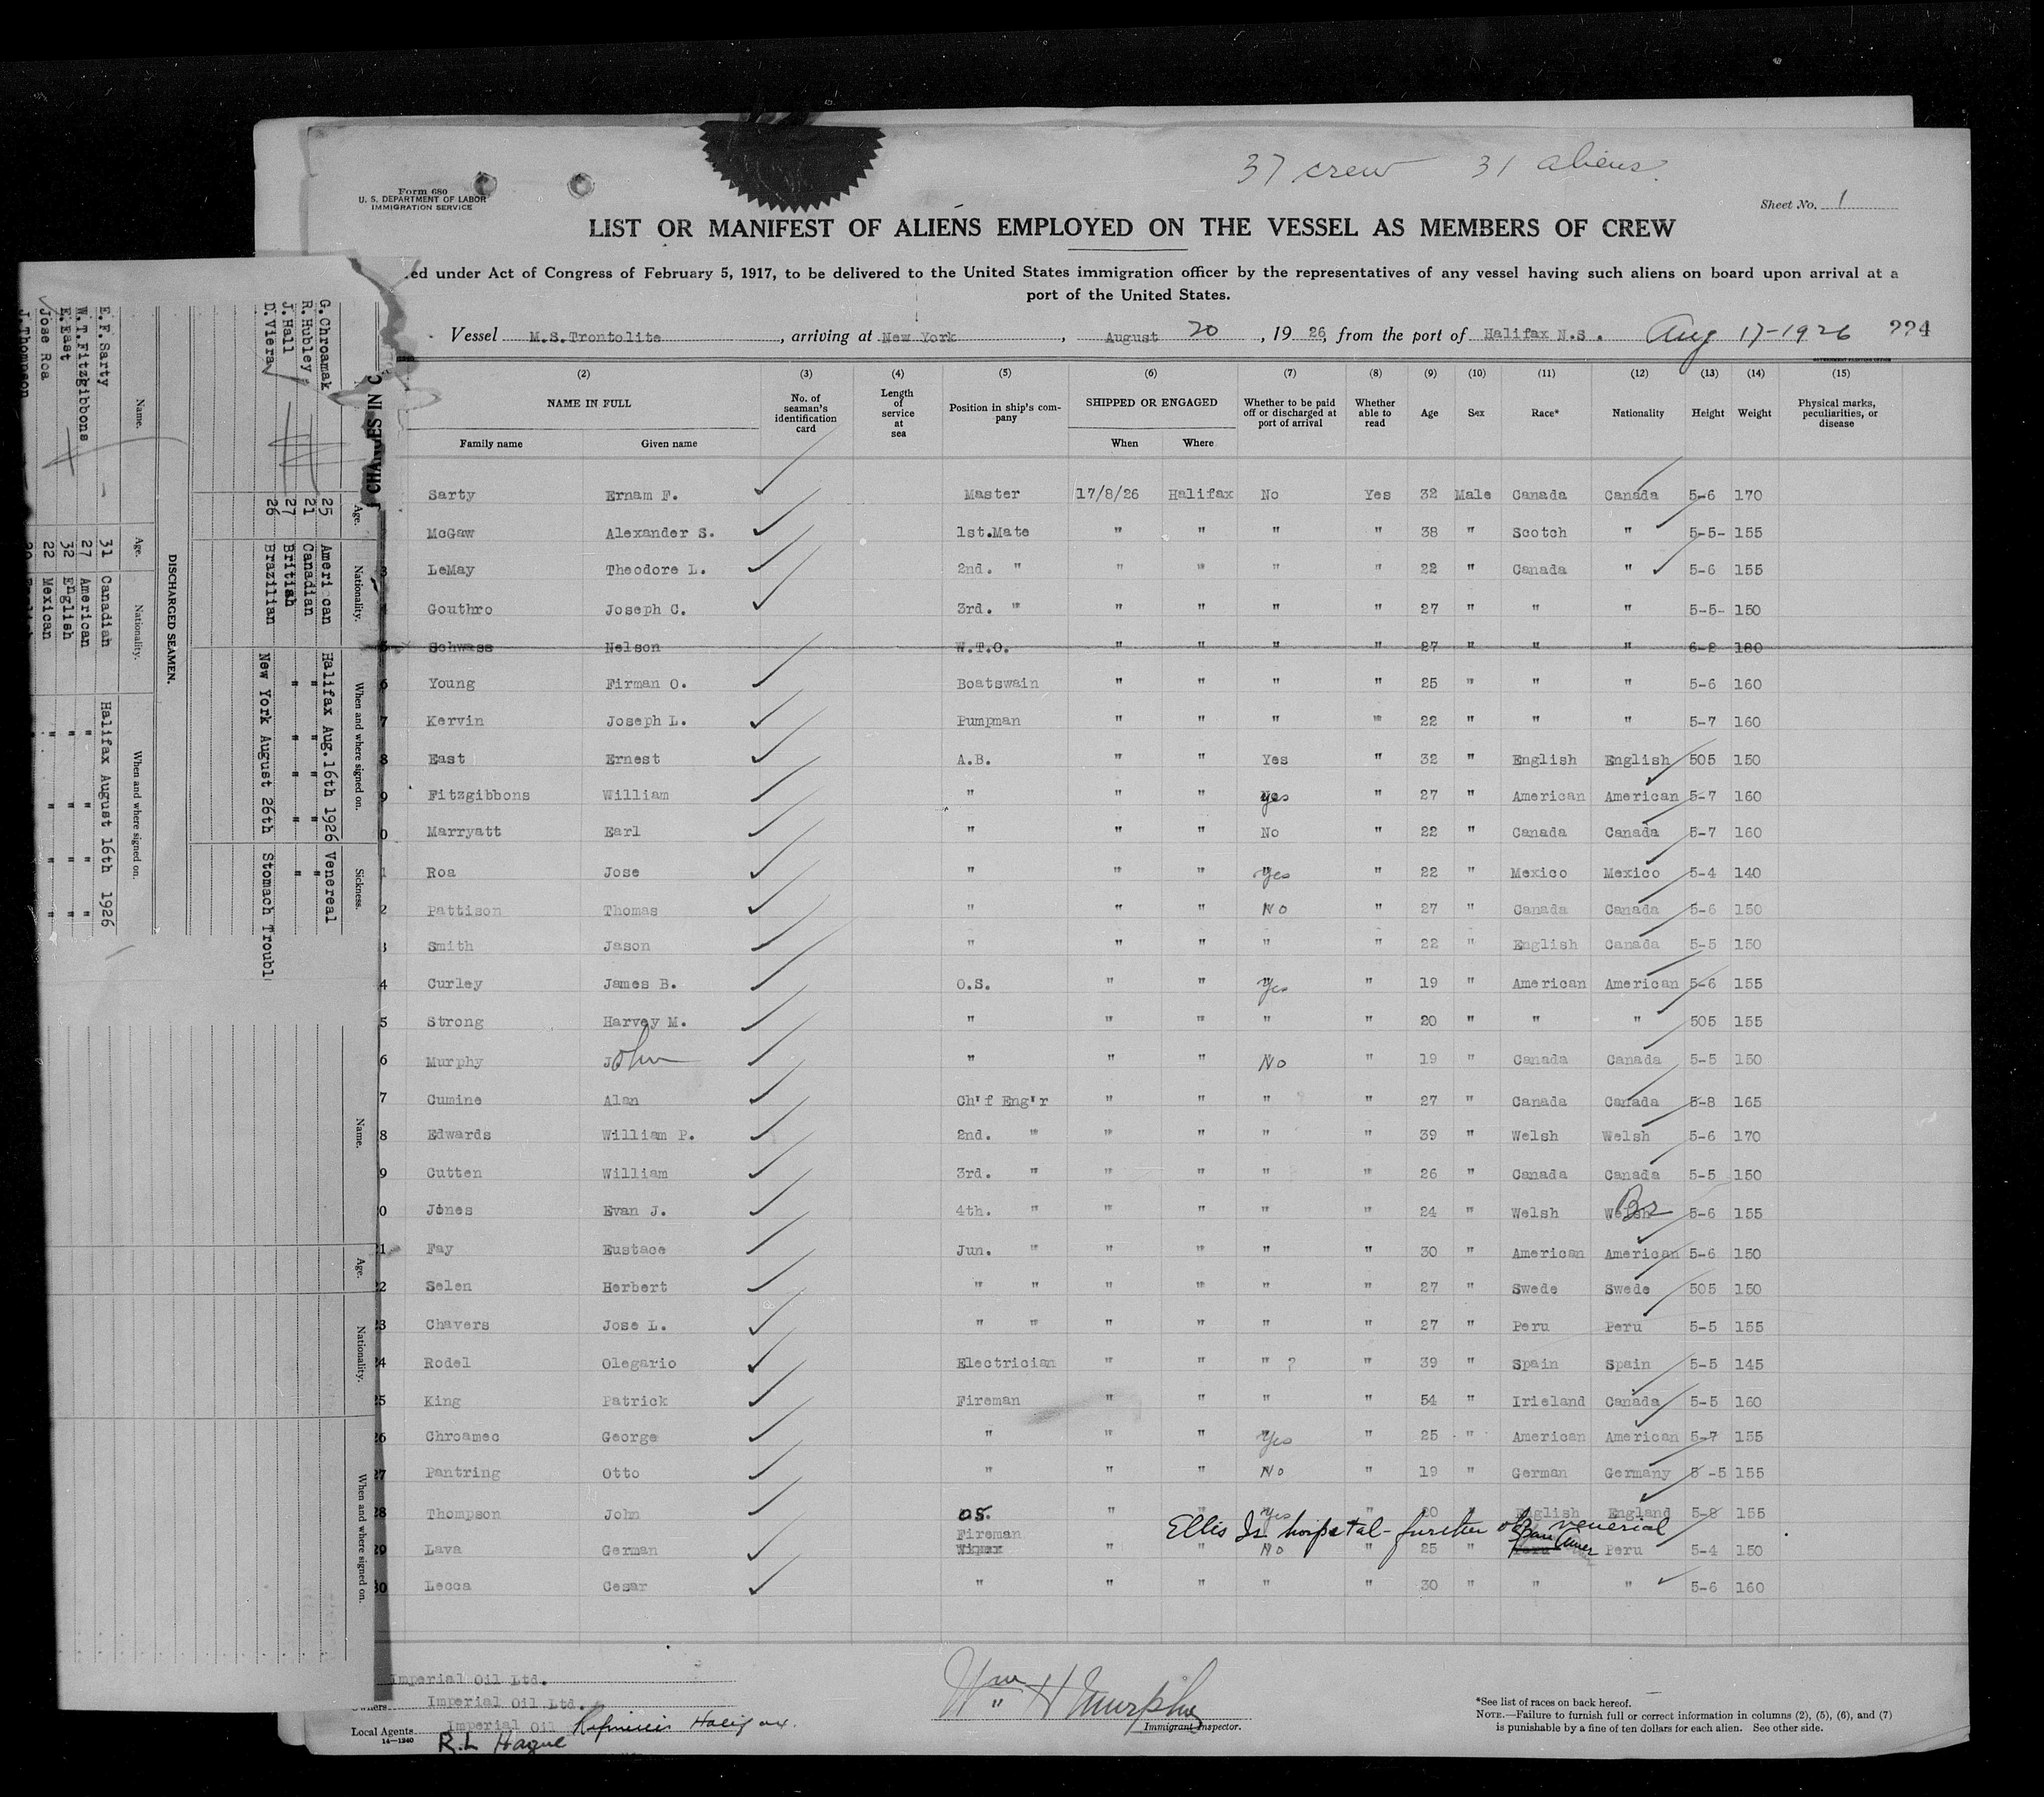 37 crew 31 aliens.
Form 680
U. S. DEPARTMENT OF LABOR
IMMIGRATION SERVICE
Sheet No. 1
LIST OR MANIFEST OF ALIENS EMPLOYED ON THE VESSEL AS MEMBERS OF CREW
ed under Act of Congress of February 5, 1917, to be delivered to the United States immigration officer by the representatives of any vessel having such aliens on board upon arrival at a
port of the United States.
Vessel M.S.Trontolite, arriving at New York, August 20, 1926, from the port of Halifax N.S. Aug 17-1926 224
(2) (3) (4) (5) (6) (7) (8) (9) (10) (11) (12) (13) (14) (15)
NAME IN FULL No. of seaman's identification card Length of service at sea Position in ship's company SHIPPED OR ENGAGED Whether to be paid off or discharged at port of arrival Whether able to read Age Sex Race* Nationality Height Weight Physical marks, peculiarities, or disease
Family name Given name When Where
Sarty Ernam F. Master 17/8/26 Halifax No Yes 32 Male Canada Canada 5-6 170
McGaw Alexander S. 1st.Mate " " " " 38 " Scotch " 5-5- 155
3 LeMay Theodore L. 2nd. " " " " " 22 " Canada " 5-6 155
4 Gouthro Joseph C. 3rd. " " " " " 27 " " " 5-5- 150
5 Schwass Nelson W.T.O. " " " " 27 " " " 6-2 180
6 Young Firman O. Boatswain " " " " 25 " " " 5-6 160
7 Kervin Joseph L. Pumpman " " " " 22 " " " 5-7 160
8 East Ernest A.B. " " Yes " 32 " English English 505 150
9 Fitzgibbons William " " " Yes " 27 " American American 5-7 160
0 Marryatt Earl " " " No " 22 " Canada Canada 5-7 160
1 Roa Jose " " " Yes " 22 " Mexico Mexico 5-4 140
2 Pattison Thomas " " " No " 27 " Canada Canada 5-6 150
3 Smith Jason " " " " " 22 " English Canada 5-5 150
4 Curley James B. O.S. " " Yes " 19 " American American 5-6 155
5 Strong Harvey M. " " " " " 20 " " " 505 155
6 Murphy John " " " No " 19 " Canada Canada 5-5 150
7 Cumine Alan Ch'f Eng'r " " " " 27 " Canada Canada 5-8 165
8 Edwards William P. 2nd. " " " " " 39 " Welsh Welsh 5-6 170
9 Cutten William 3rd. " " " " " 26 " Canada Canada 5-5 150
0 Jones Evan J. 4th. " " " " " 24 " Welsh Welsh Br 5-6 155
21 Fay Eustace Jun. " " " " " 30 " American American 5-6 150
22 Selen Herbert " " " " " " 27 " Swede Swede 505 150
23 Chavers Jose L. " " " " " " 27 " Peru Peru 5-5 155
24 Rodel Olegario Electrician " " " ? " 39 " Spain Spain 5-5 145
25 King Patrick Fireman " " " " 54 " Irieland Canada 5-5 160
26 Chroamec George " " " Yes " 25 " American American 5-7 155
27 Pantring Otto " " " No " 19 " German Germany 5 -5 155
28 Thompson John O.S. " " Yes " 20 " English England 5-8 155
Ellis Is hospital - further venerial
Fireman
29 Lava German Wiper " " No " 25 " Peru Peru 5-4 150
30 Lecca Cesar " " " " " 30 " " " 5-6 160
Imperial Oil Ltd.
Owners Imperial Oil Ltd.
Local Agents Imperial Oil Refineries Halifax.
14—1240
R.L Hague
Wm H Murphy
Immigrant Inspector.
*See list of races on back hereof.
NOTE.—Failure to furnish full or correct information in columns (2), (5), (6), and (7)
is punishable by a fine of ten dollars for each alien. See other side.
CHANGES IN C
Name. Age. Nationality. When and where signed on. Sickness.
G.Chroamak 25 American Halifax Aug.16th 1926 Venereal
R.Hubley 21 Canadian " " " " "
J.Hall 27 British " " " " "
D.Viera 26 Brazilian New York August 26th Stomach Troubl
DISCHARGED SEAMEN.
Name. Age. Nationality. When and where signed on.
E.F.Sarty 31 Canadian Halifax August 16th 1926
W.T.Fitzgibbons 27 American " " " "
E.East 32 English " " " "
Jose Roa 22 Mexican " " " "
J.Thompson 20 English
Name. Age. Nationality. When and where signed on.